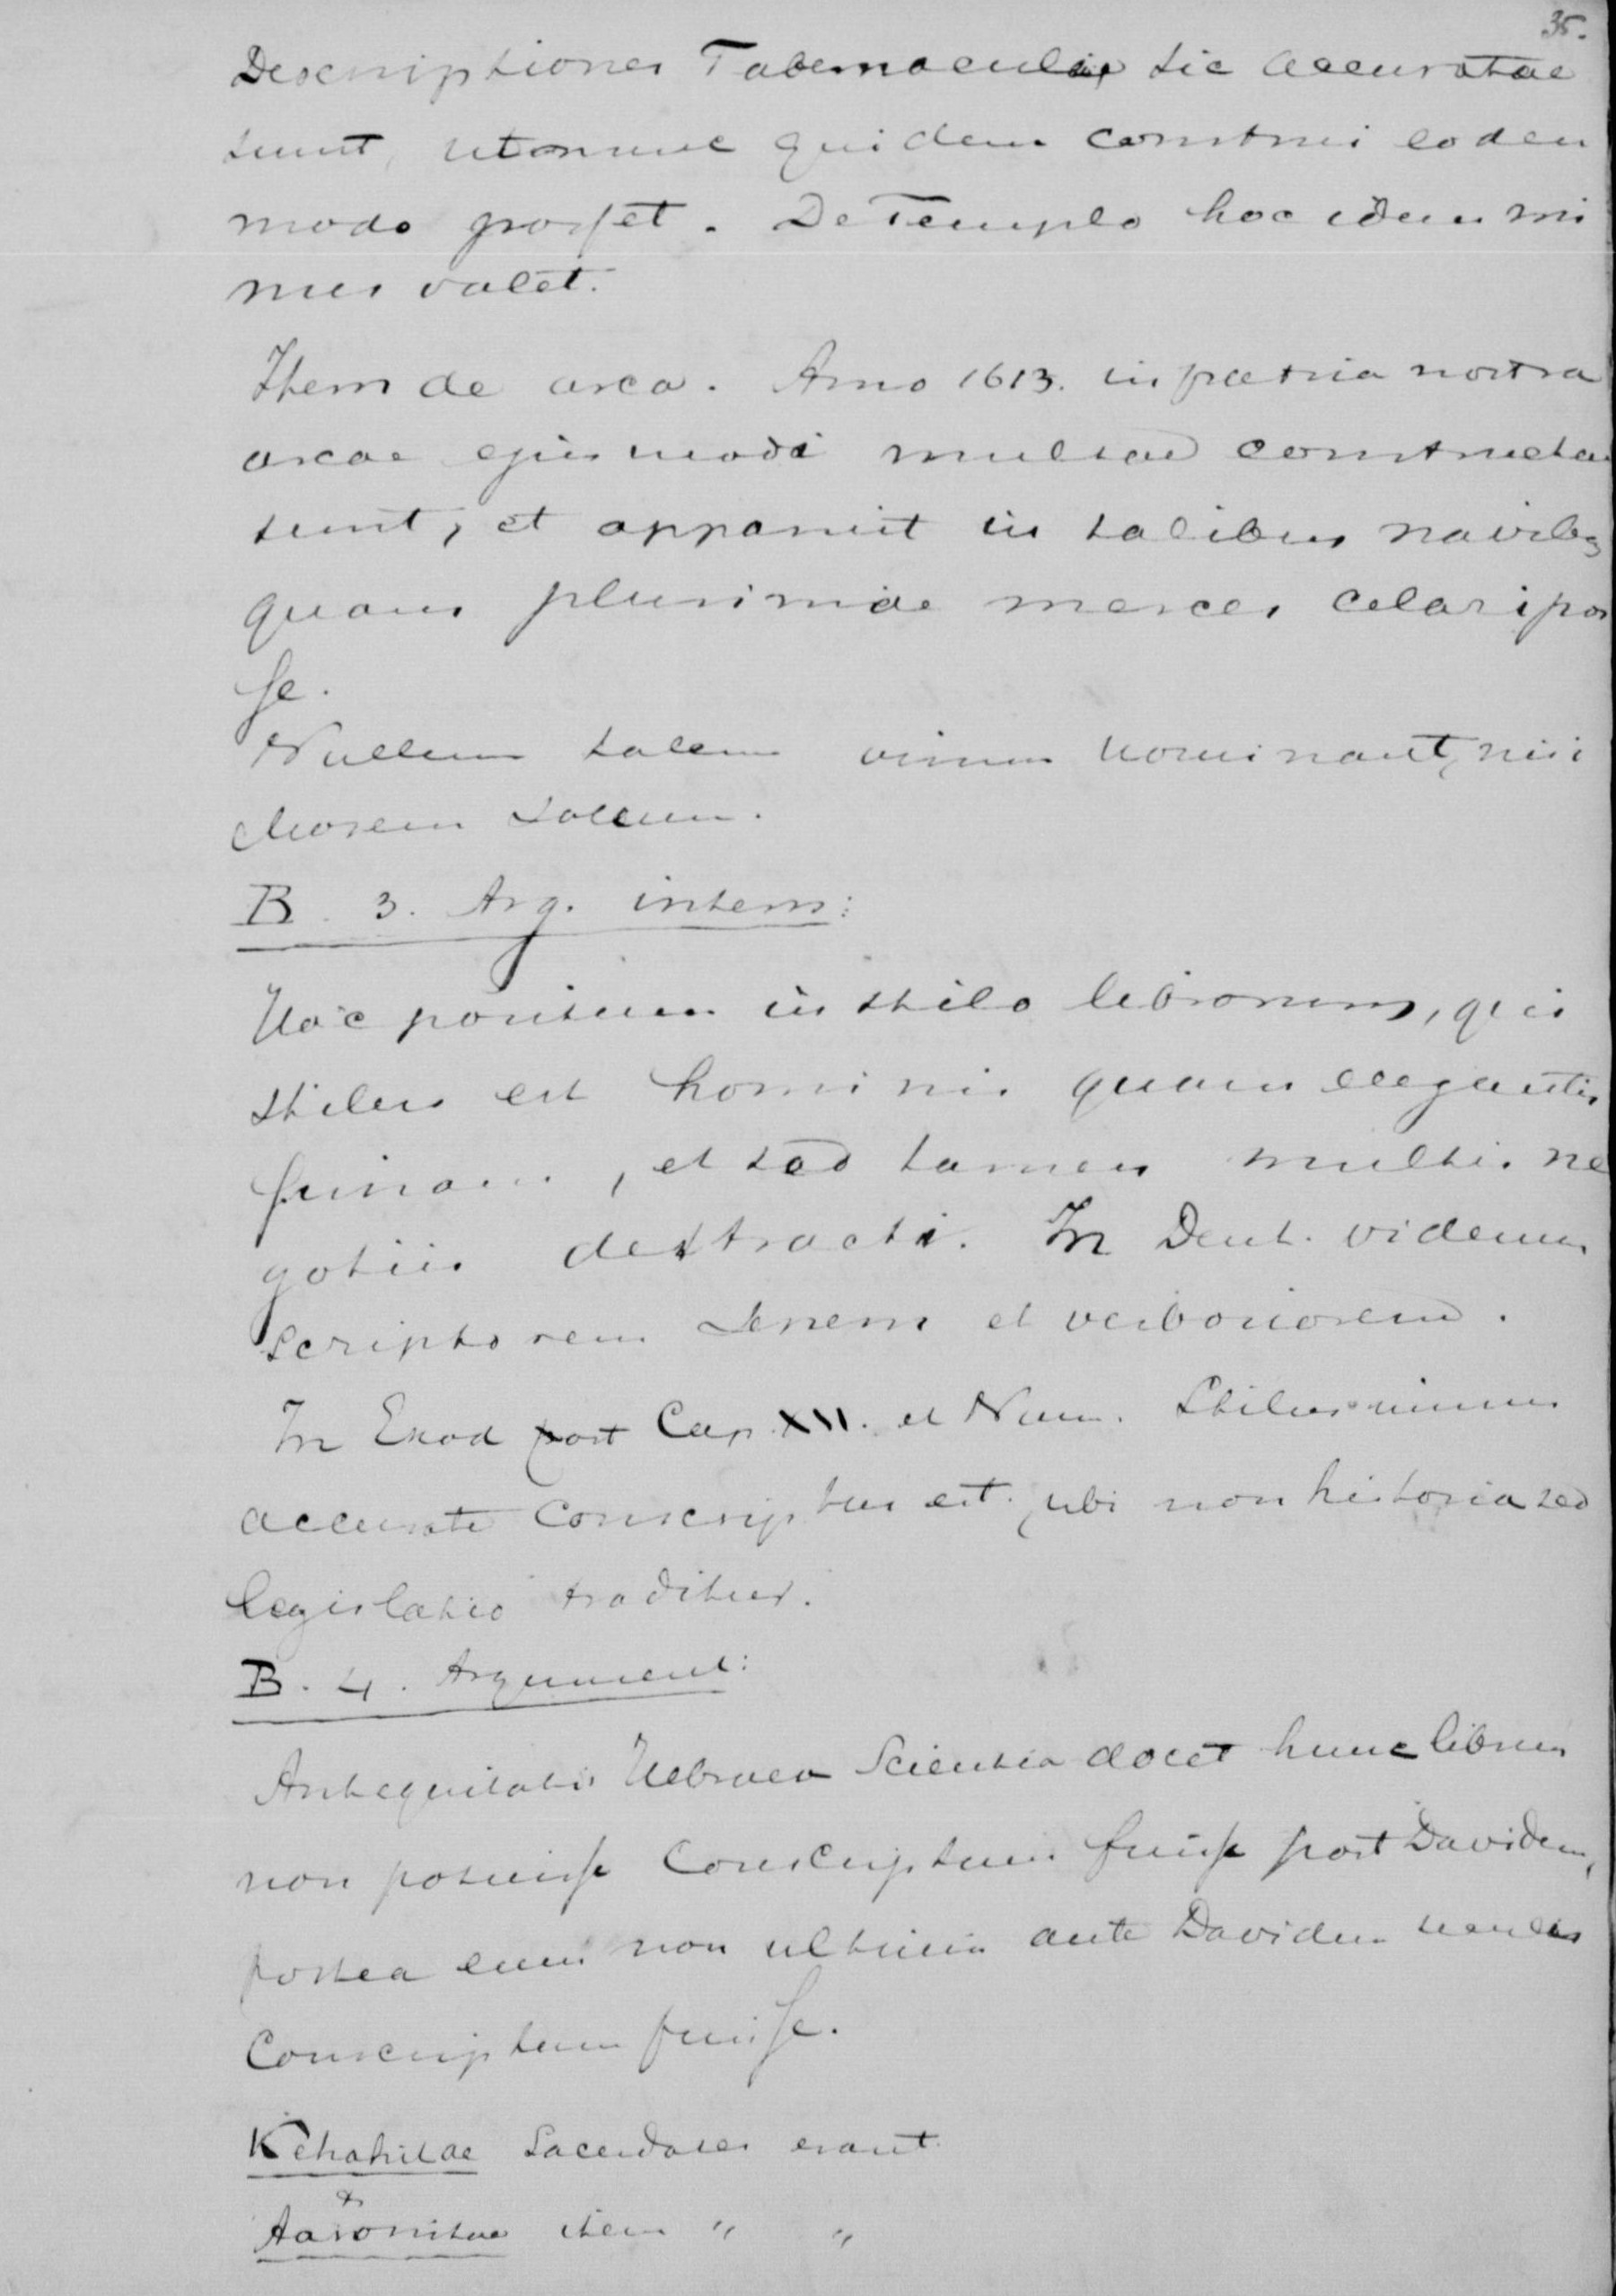 35.
Descriptiones Tabernaculi sic accuratae
sunt, ut nunc quidem construi eodem
modo posset. De Templo hoc idem mi
nus valet.
Item de arca. Anno 1613. in patria nostra
arcae ejusmodi multae constructae
sunt, et apparuit in talibus navibus
quam plurimae merces celari pos
se.
Nullum talem virum nominant, nisi
Mosem solum.
B. 3. Arg. intern:
Hoc positum in stilo librorum, qui
stilus est hominis quam elegantis
simam, et sed tamen multis ne
gotiis destracti. In Deut. videmus
scriptorem senem et verbosiorem.
In Exod post Cap. XII. et Num. Stilus minus
accurate conscriptus est, ubi non historia sed
legislatio traditur.
B. 4. Argument:
Antiquitatis Hebraea Scientia docet hunc librum
non potuisse conscriptum fuisse post Davidem,
postea eum non ultimum ante Davidem
conscriptum fuisse.
Kehatitae Sacerdotes erant
&
Aaronitae item " "